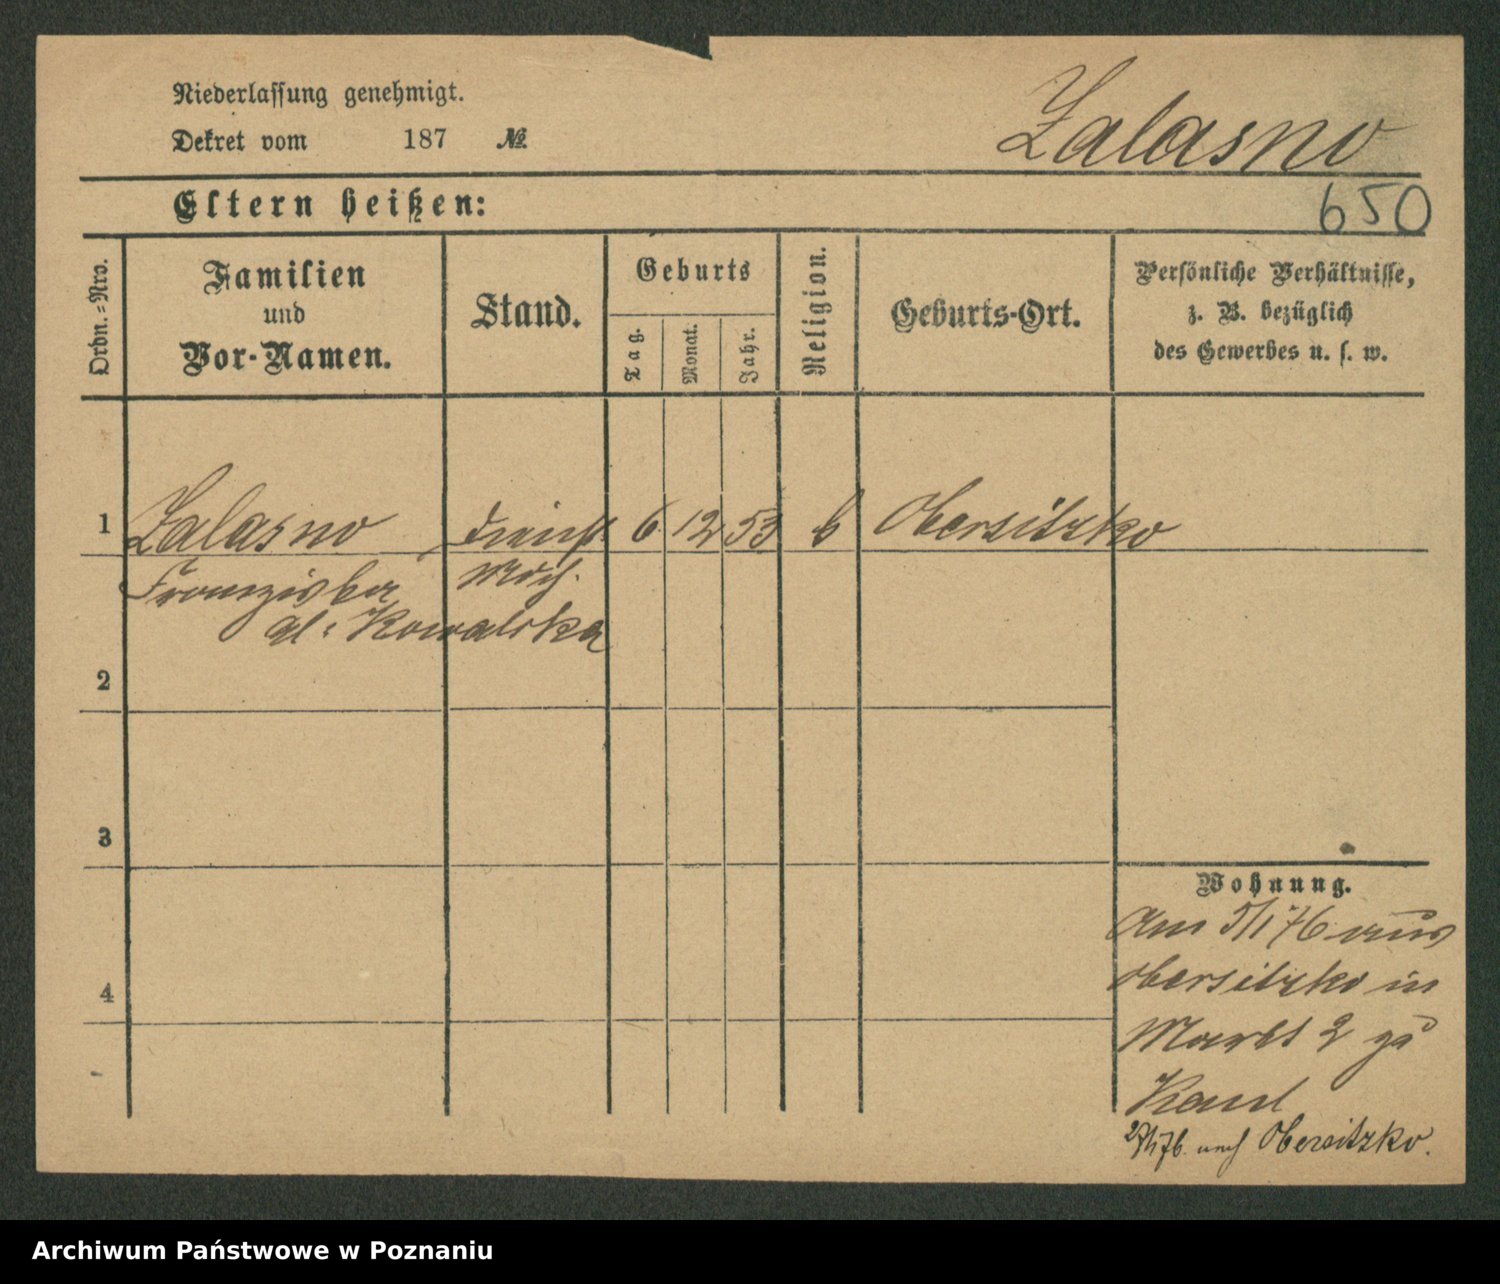 Niederlassung genehmigt.
Dekret vom 187 №
Zalasno
650
Eltern heißen:
Ordn.-Nro.
Familien
und
Vor-Namen.
Stand.
Geburts
Tag.
Monat.
Jahr.
Religion.
Geburts-Ort.
Persönliche Verhältnisse,
z. B. bezüglich
des Gewerbes u. s. w.
1 Zalasno Dienst 6 12 53 k Obersitzko
Franziska Mdch.
gl: Kowalska
2
3
4
Wohnung.
Am 5/1 76 aus
Obersitzko in
Markt 2 zu
2/176. nach Obersitzko.
Archiwum Państwowe w Poznaniu